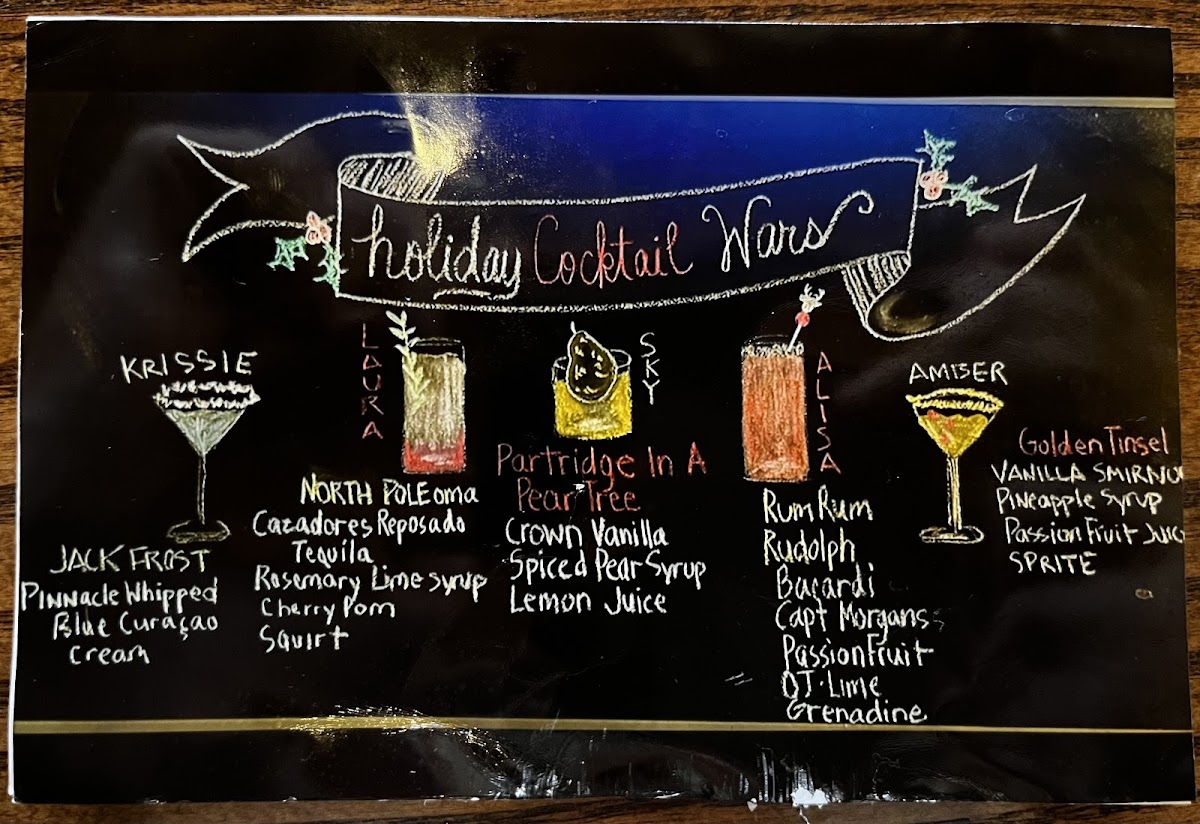 holiday Cocktail Wars
KRISSIE
JACK FROST
Pinnacle Whipped
Blue Curaçao
Cream
LAURA
NORTH POLEoma
Cazadores Reposado
Tequila
Rosemary Lime syrup
Cherry Pom
Squirt
SKY
Partridge In A
Pear Tree
Crown Vanilla
Spiced Pear Syrup
Lemon Juice
ALISA
Rum Rum
Rudolph
Bacardi
Capt Morgans
Passion Fruit
OJ·Lime
Grenadine
AMBER
Golden Tinsel
VANILLA
Pineapple Syrup
Passion Fruit
SPRITE